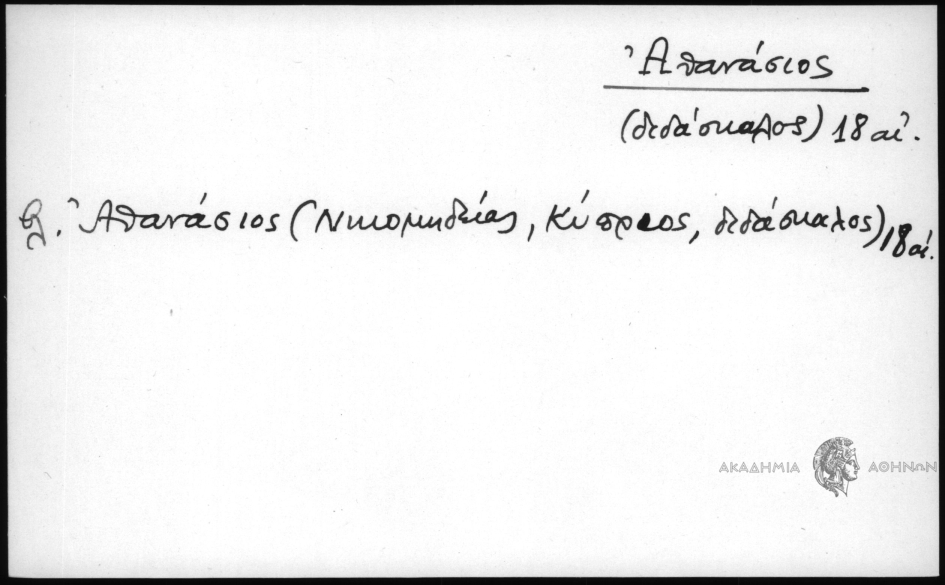 Ἀθανάσιος
(διδάσκαλος) 18 αἰ.
βλ. Ἀθανάσιος (Νικομηδείας, Κύπριος, διδάσκαλος) 18 αἰ.
ΑΚΑΔΗΜΙΑ ΑΘΗΝΩΝ